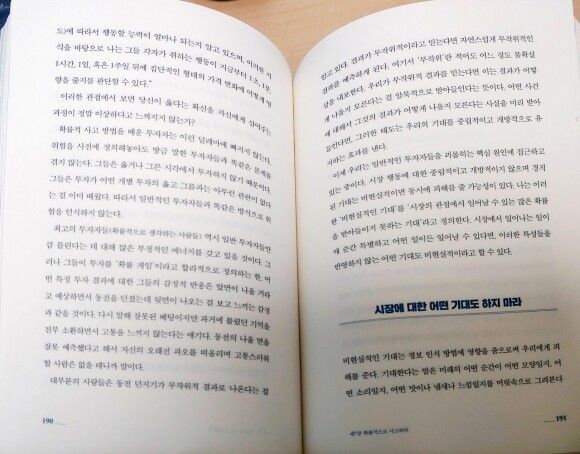 도)에 따라서 행동할 능력이 얼마나 되는지 알고 있으며, 이러한 지
식을 바탕으로 나는 그들 각자가 취하는 행동이 지금부터 1초, 1분,
1시간, 1일, 혹은 1주일 뒤에 집단적인 형태의 가격 변화에 어떻게 영
향을 줄지를 판단할 수 있다."
이러한 관점에서 보면 당신이 옳다는 확신을 자신에게 심어주는
과정이 정말 이상하다고 느껴지지 않는가?
확률적 사고 방법을 배운 투자자는 이런 딜레마에 빠지지 않는다.
위험을 사전에 정의해놓아도 방금 말한 투자자들과 똑같은 문제를
겪지 않는다. 그들은 옳거나 그른 시각에서 투자하지 않기 때문이다.
그들은 투자가 어떤 개별 투자의 옳고 그름과는 아무런 관련이 없다
는 걸 이미 배웠다. 따라서 일반적인 투자자들과 똑같은 방식으로 위
험을 인식하지 않는다.
최고의 투자자들(확률적으로 생각하는 사람들) 역시 일반 투자자들만
큼 틀린다는 데 대해 많은 부정적인 에너지를 갖고 있을 것이다. 그
러나 그들이 투자를 '확률 게임'이라고 합리적으로 정의하는 한, 어
떤 특정 투자 결과에 대한 그들의 감정적 반응은 앞면이 나올 거라
고 예상하면서 동전을 던졌는데 뒷면이 나오는 걸 보고 느끼는 감정
과 같을 것이다. 다시 말해 잘못된 베팅이지만 과거에 틀렸던 기억을
전부 소환하면서 고통을 느끼지 않는다는 얘기다. 동전의 나올 면을
잘못 예측했다고 해서 자신의 오래전 과오를 떠올리며 고통스러워
할 사람은 없을 테니까 말이다.
대부분의 사람들은 동전 던지기가 무작위적 결과로 나온다는 걸
190
알고 있다. 결과가 무작위적이라고 믿는다면 자연스럽게 무작위적인
결과를 예측하게 된다. 여기서 '무작위'란 적어도 어느 정도 불확실
성을 내포한다. 우리가 무작위적 결과를 믿는다면 이는 결과가 어떻
게 나올지 모른다는 걸 암묵적으로 받아들인다는 뜻이다. 어떤 사건
에 대해서 그것의 결과가 어떻게 나올지 모른다는 사실을 미리 받아
들인다면, 그러한 태도는 우리의 기대를 중립적이고 개방적으로 유
지하는 효과를 낸다.
이제 우리는 일반적인 투자자들을 괴롭히는 핵심 원인에 접근하고
있는 중이다. 시장 행동에 대한 중립적이고 개방적이지 않으며 경직
된 기대는 비현실적이면 동시에 피해를 줄 가능성이 있다. 나는 이러
한 '비현실적인 기대'를 '시장의 관점에서 일어날 수 있는 많은 확률
을 받아들이지 못하는 기대'라고 정의한다. 시장에서 일어나는 일이
매 순간 특별하고 어떤 일이든 일어날 수 있다면, 이러한 특성들을
반영하지 않는 어떤 기대도 비현실적이라고 할 수 있다.
시장에 대한 어떤 기대도 하지 마라
비현실적인 기대는 정보 인식 방법에 영향을 줌으로써 우리에게 피
해를 준다. 기대한다는 말은 미래의 어떤 순간이 어떤 모양일지, 어
떤 소리일지, 어떤 맛이나 냄새나 느낌일지를 머릿속으로 그려본다
제7장 확률적으로 사고하라
191